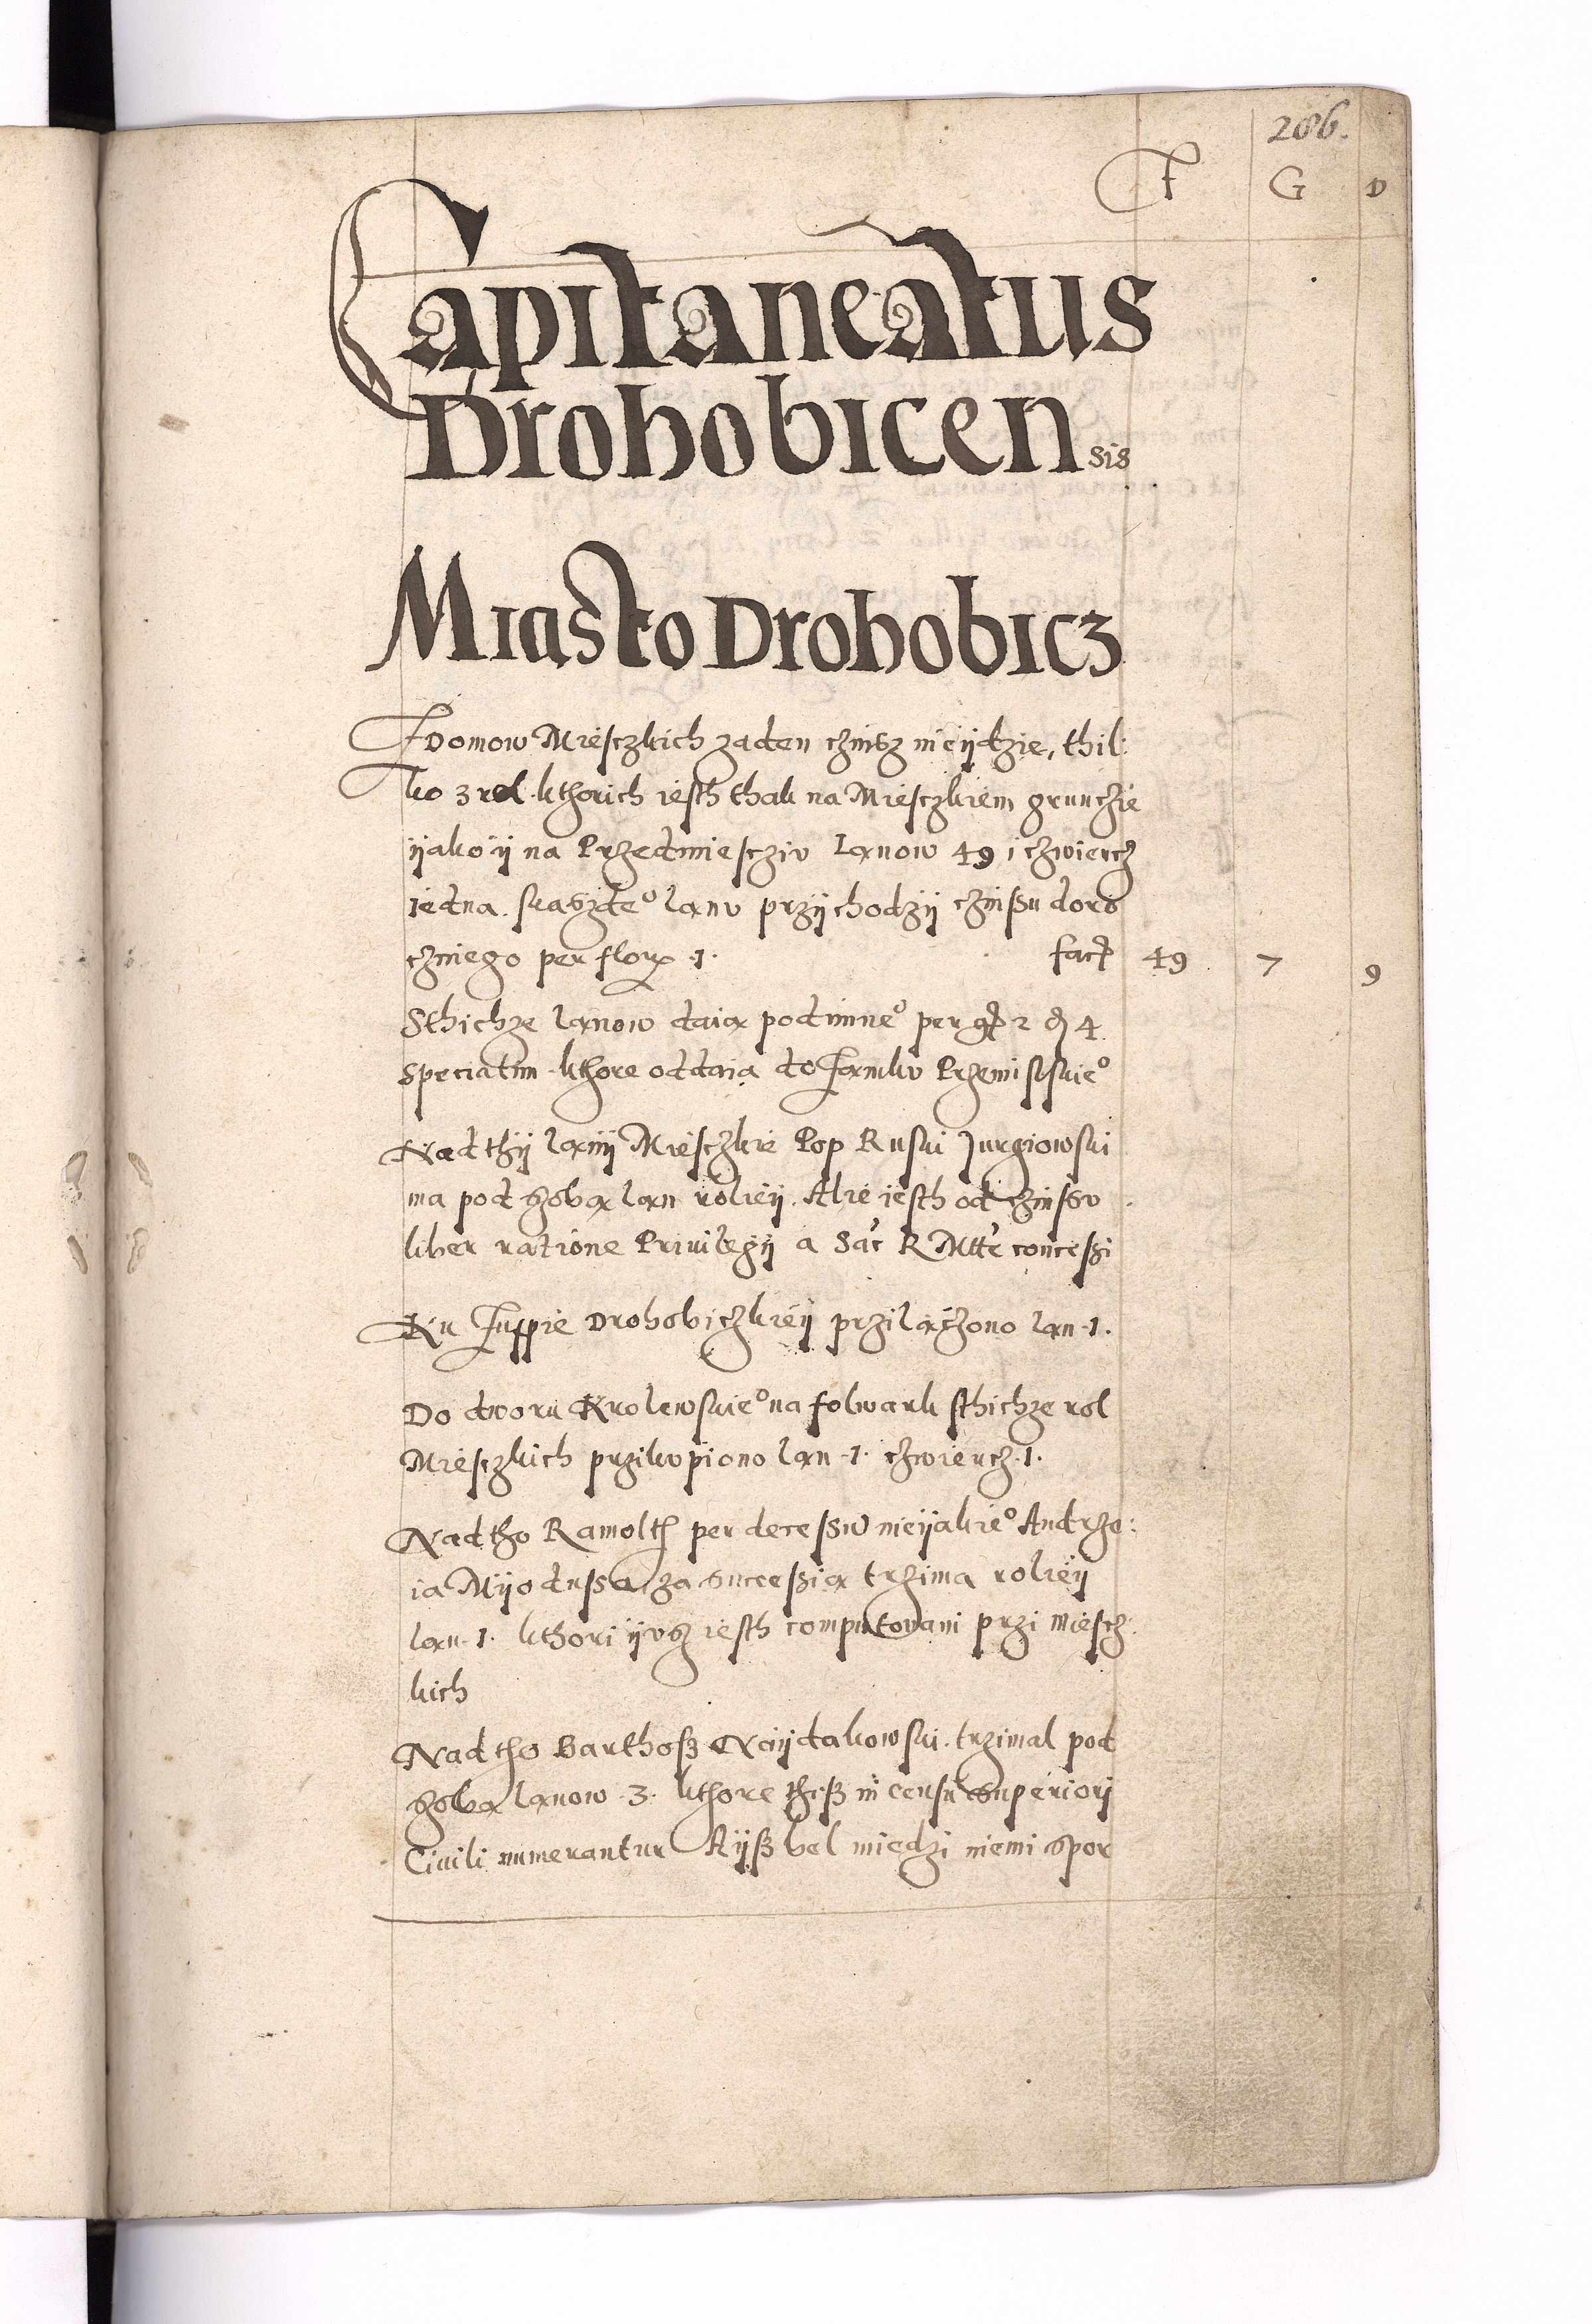 206.
F G D
Capitaneatus
Drohobicensis
Miasto Drohobicz
Z Domow Miesczkich zaden czinsz nieydzie, thil:
ko z rol kthorich iesth thak na Miesczkiem grunczie
yako y na Przedmiescziv Lanow 49 i czwiercz
iedna. skaszde° lanv przychodzy czinssu doro
cznego per flor. 1. facit 49 7 9
Sthichze lanow daia podimne° per gr 2 d 4
speciatim kthore oddaia do Zamkv Przemislskie°
Nad thy lany Miesczkie Pop Ruski Jurgiowski
ma pod soba lan roliey. Alie iesth od czinssv
liber ratione Priuilegij a Sac R Mtte concessi
Ku Zuppie Drohobiczkiey przilączono lan 1.
Do dworu Krolewskie° na folwark sthichze rol
Miesczkich przikvpiono lan 1. czwiercz 1.
Nad tho Ramolth per decessum nieyakie° Andrze:
ia Myodussa za successia trzima roliey
lan 1. kthori yvsz iesth computowani przi miescz:
kich
Nad tho Barthosz Naydakowski trzimal pod
soba lanow 3. kthore thesz in censu superiori
Ciuili numerantur Aysz bel miedzi niemi spor